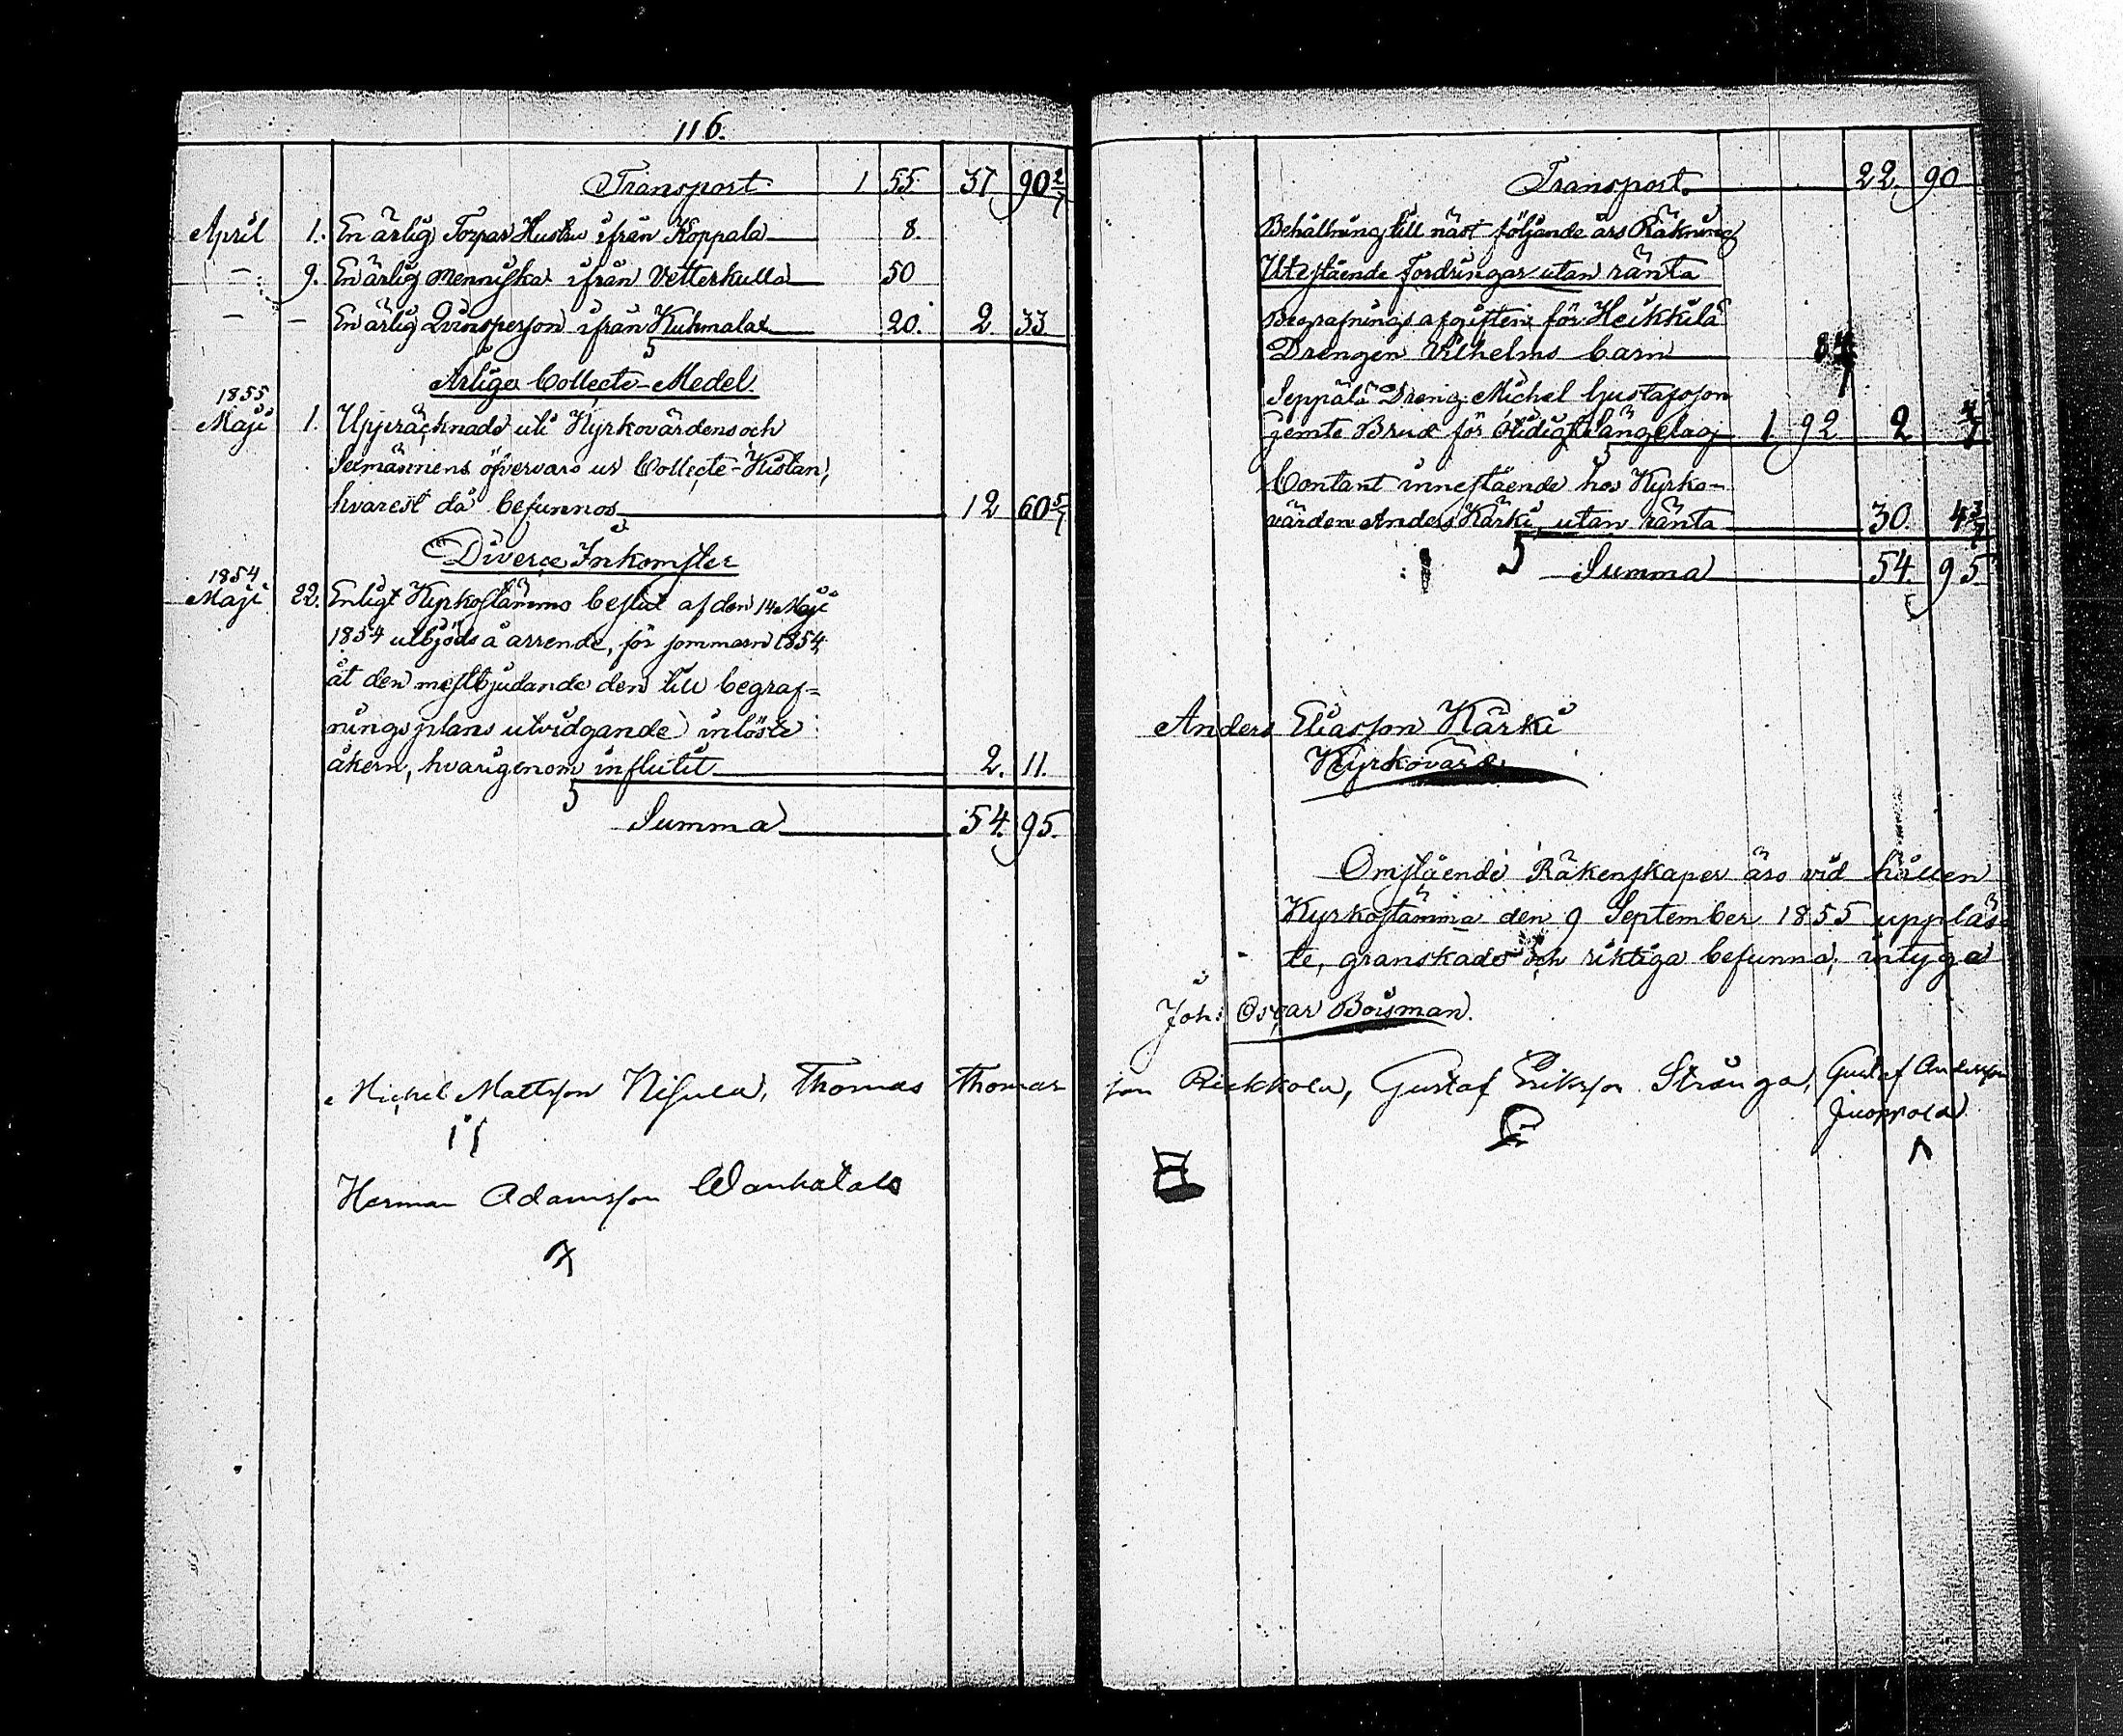 116.
Transport 1 55. 37 90 2/7
April 1. En ärlig Torpar Hustru ifrån Koppala 8.
— 9. En ärlig menniska ifrån Vetterkulla 50
— — En ärlig Qvinsperson ifrån Kuhmalax 20. 2. 33
Årliga Collecte-Medel.
1855
Maji 1. Uppräcknade uti Kyrkovärdens och
Sexmännens öfvervaro ur Collecte-Kistan,
hvarest då befunnos 12 60 5/7
Diverse Inkomster
1854
Maji 22. Enligt Kyrkostämmo beslut af den 14 Maji
1854 utbjöds å arrende, för sommarn 1854,
åt den mestbjudande den till begraf=
ningsplans utvidgande inlöste
åkern, hvarigenom influtit 2. 11.
Summa 54. 95.
Michel Mattsson Nisula, Thomas Thomas
Herman Adamsson Wanhatalo
Transport. 22. 90
Behållning till näst följande års Räkning
Utestående Fordringar utan ränta
Begrafnings afgiften för Heikkilä
Drengen Vilhelms barn
Seppälä Dreng Michel Gustafsson
jemte Brud för otidigt sängelag 1. 92 2 4/7
Contant innestående hos Kyrko-
värden Anders Kärki, utan ränta 30. 4 3/7
Summa 54. 95.
Anders Eliasson Kärki
Kyrkovärd
Omstående Räkenskaper äro vid hållen
Kyrkostämma den 9 September 1855 uppläs-
te, granskade och riktiga befunna, intyga
Joh: Oscar Boisman.
son Riekkola, Gustaf Eriksson Stränga, Gustaf Andersson
Juoppola